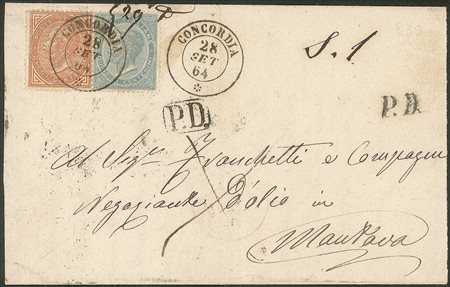 CONCORDIA
28
SET
64
CONCORDIA
28
SET
64
S. 1
P.D.
P.D.
Al Sigr Franchetti e Compagni
Negoziante D'olio in
Mantova